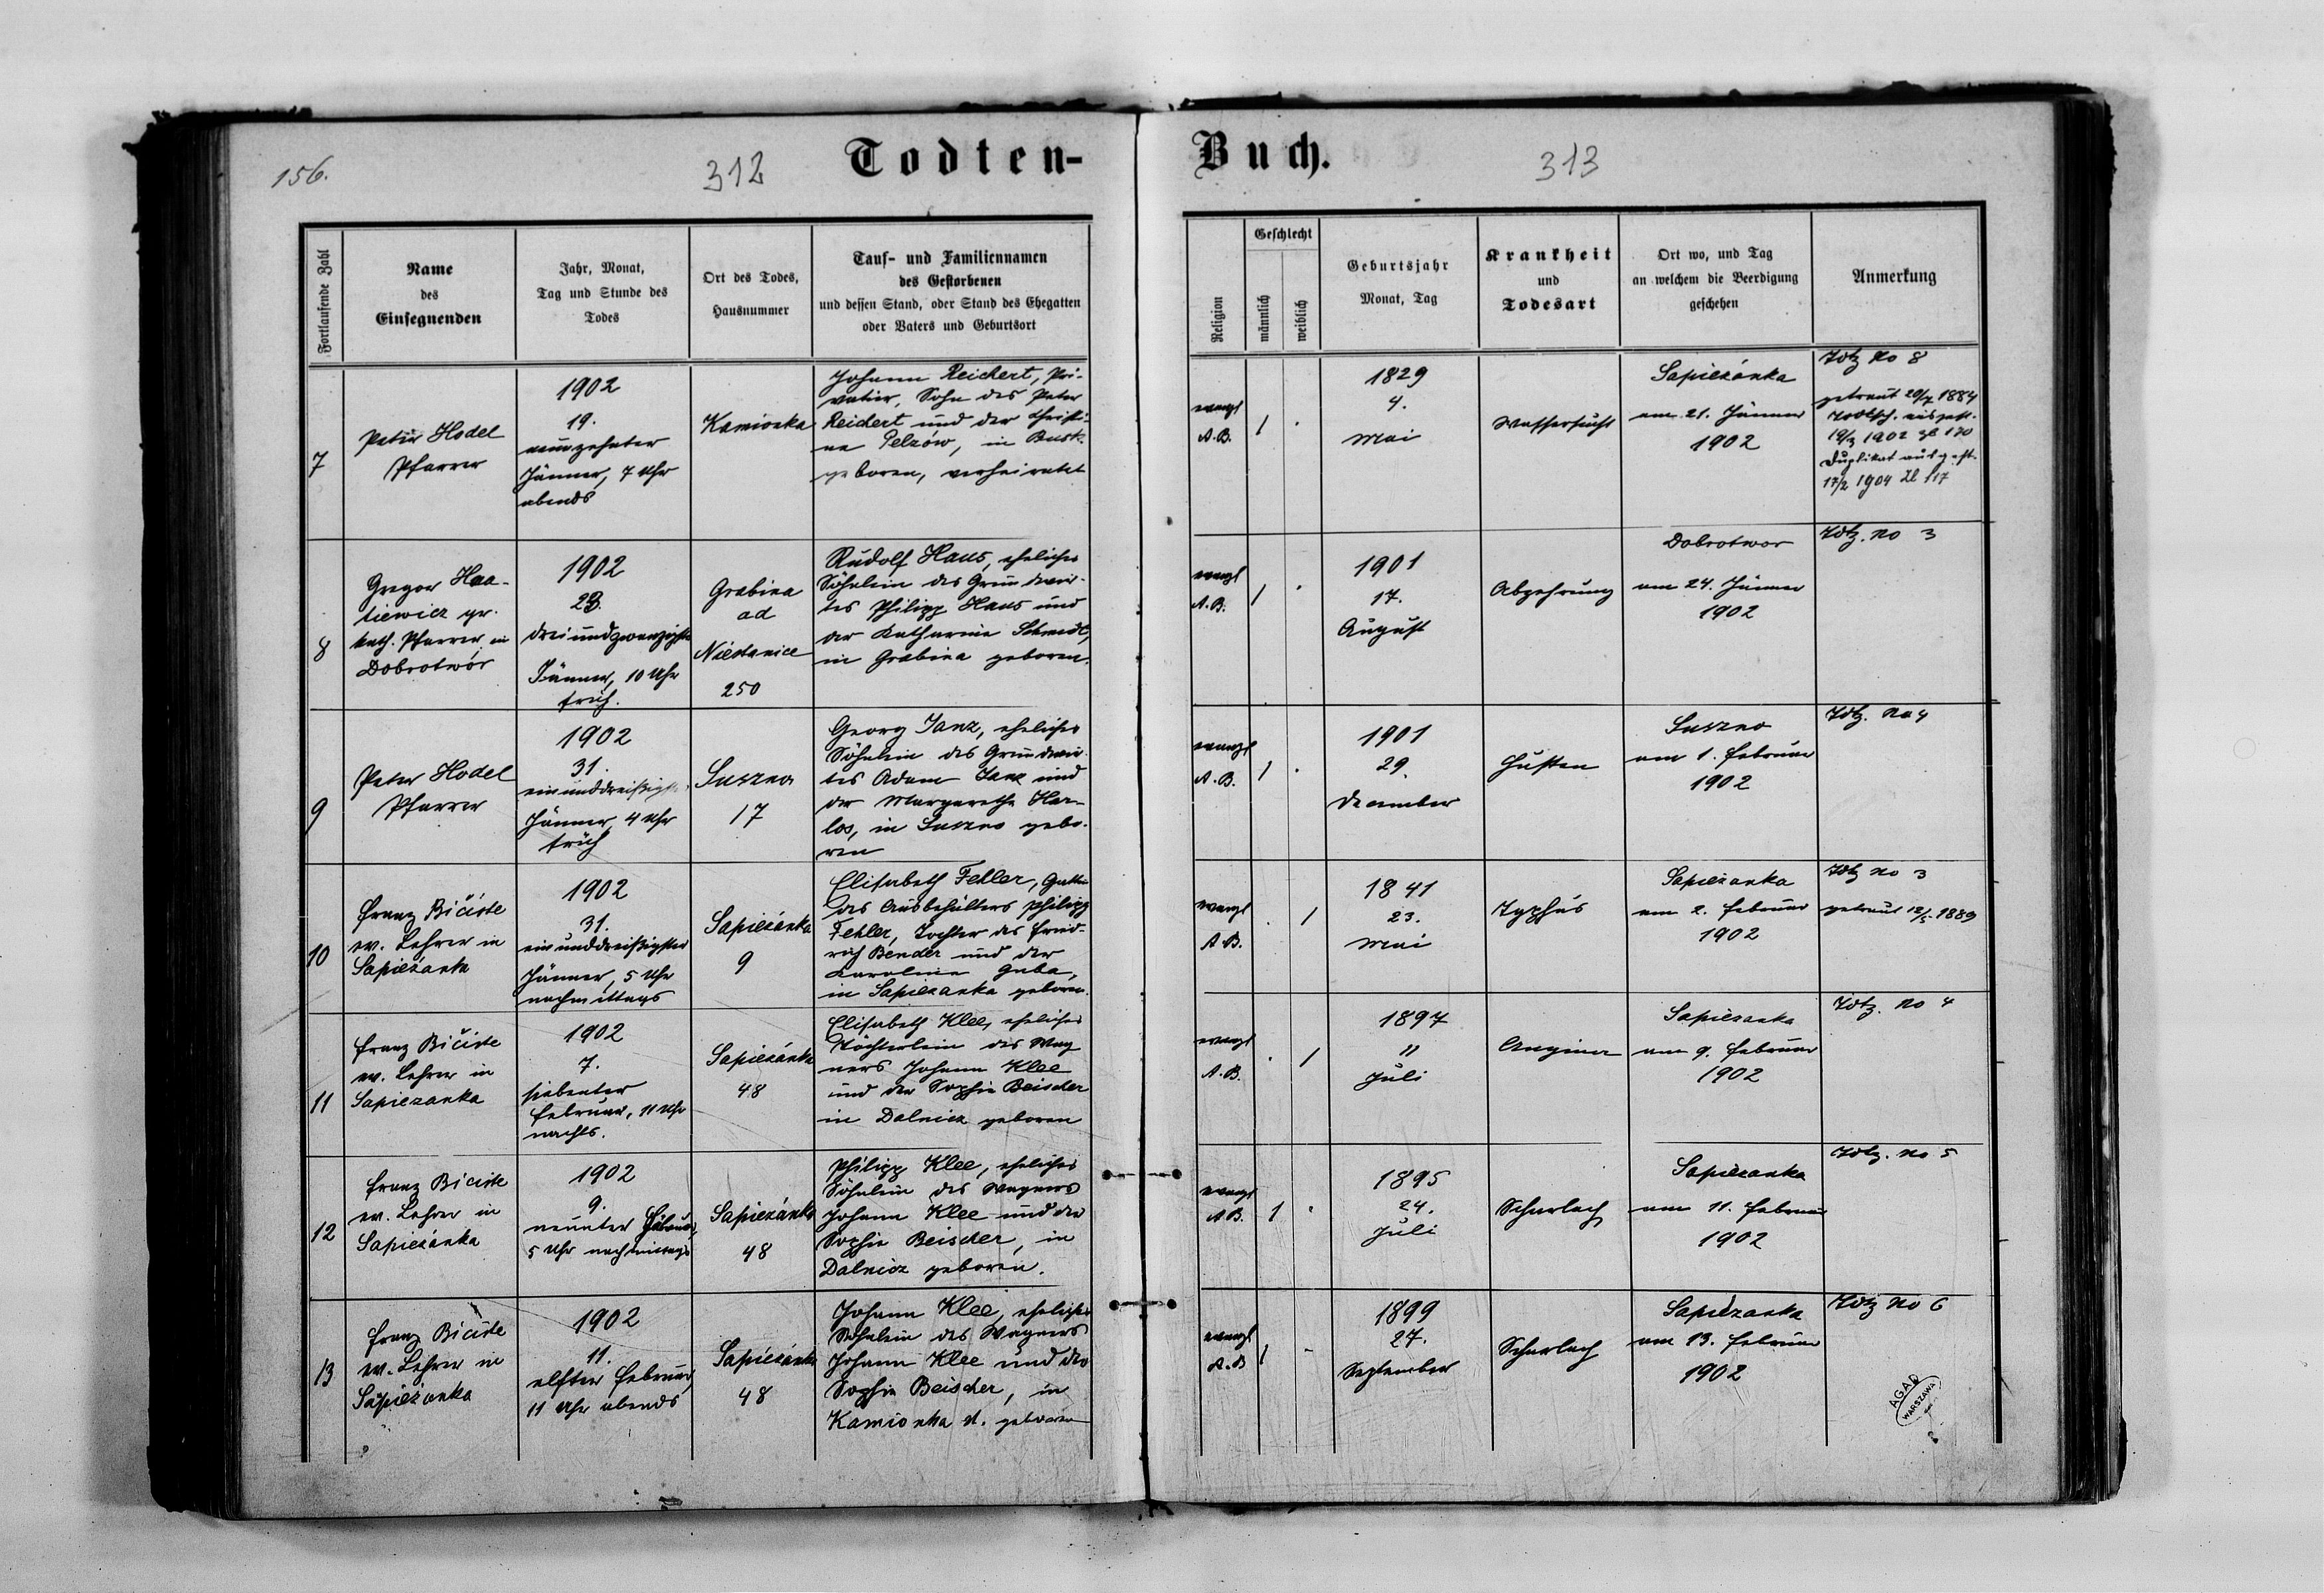 156.
312
Todten-
Fortlaufende Zahl
Name
des
Einsegnenden
Jahr, Monat,
Tag und Stunde des
Todes
Ort des Todes,
Hausnummer
Tauf- und Familiennamen
des Gestorbenen
und dessen Stand, oder Stand des Ehegatten
oder Vaters und Geburtsort
7
Peter Hodel
Pfarrer
1902
19.
neunzehnter
Jänner, 7 Uhr
abends
Kamionka
Johann Reichert, Pri-
vatier, Sohn des Peter
Reichert und der Christi-
na Pelzów, in Busk
geboren, verheiratet
8
Gregor
tiewicz gr.
kath. Pfarrer in
Dobrotwór
1902
23.
dreiundzwanzigster
Jänner, 10 Uhr
früh.
Grabina
ad
Niestanice
250
Rudolf Haus, eheliches
Söhnlein des Grundwir-
tes Philipp Haus und
der Katharina Schmidt,
in Grabina geboren.
9
Peter Hodel
Pfarrer
1902
31.
einunddreißigster
Jänner, 4 Uhr
früh
Suszno
17
Georg Janz, eheliches
Söhnlein des Grundwir-
tes Adam Janz und
der Margarethe Har-
los, in Suszno gebo-
ren
10
Franz Bičiste
ev. Lehrer in
Sapieżanka
1902
31.
einunddreißigster
Jänner, 5 Uhr
nachmittags
Sapieżanka
9
Elisabeth Fehler, Gattin
des Ausbehälters Philipp
Fehler, Tochter des Fried-
rich Bender und der
Karolina Guba,
in Sapiezanka geboren.
11
Franz Bičiste
ev. Lehrer in
Sapiezanka
1902
7.
siebenter
Februar, 11 Uhr
nachts.
Sapieżanka
48
Elisabeth Klee, eheliches
Töchterlein des Wag
ners Johann Klee
und der Sophie Beischer
in Dalnicz geboren
12
Franz Biciste
ev. Lehrer in
Sapieżanka
1902
9.
neunter Februar,
5 Uhr nachmittags
Sapieżanka
48
Philipp Klee, eheliches
Söhnlein des Wagners
Johann Klee und der
Sophie Beischer, in
Dalnicz geboren.
13
Franz Biciste
ev. Lehrer in
Sapieżanka
1902
11.
elfter Februar,
11 Uhr abends
Sapieżanka
48
Johann Klee, eheliches
Söhnlein des Wagners
Johann Klee und der
Sophie Beischer, in
Kamionka st. geboren
Buch.
313
Religion
Geschlecht
männlich
weiblich
Geburtsjahr
Monat, Tag
Krankheit
und
Todesart
Ort wo, und Tag
an welchem die Beerdigung
geschehen
Anmerkung
evangl
A.B.
1
1829
4.
Mai
Wassersucht
Sapieżanka
am 21. Jänner
1902
No 8
getraut 20/7 1884
Todtsch. ausgest.
19/3 1902 Zl 170
Duplikat ausgest.
17/2 1904 Zl 117
evangl
A.B.
1
1901
17.
August
Abzehrung
Dobrotwor
am 24. Jänner
1902
No 3
evangl
A.B.
1
1901
29.
December
Husten
Suszno
am 1. Februar
1902
No 4
evangl
A.B.
1
1841
23.
Mai
Typhus
Sapieżanka
am 2. Februar
1902
No 3
getraut 12/5 1889
evangl
A.B.
1
1897
11
Juli
Angina
Sapiezanka
am 9. Februar
1902
No 4
evangl
A.B.
1
1895
24.
Juli
Scharlach
Sapiezanka
am 11. Februar
1902
No 5
evangl
A.B
1
1899
27.
September
Scharlach
Sapiezanka
am 13. Februar
1902
No 6
AGAD
WARSZAWA